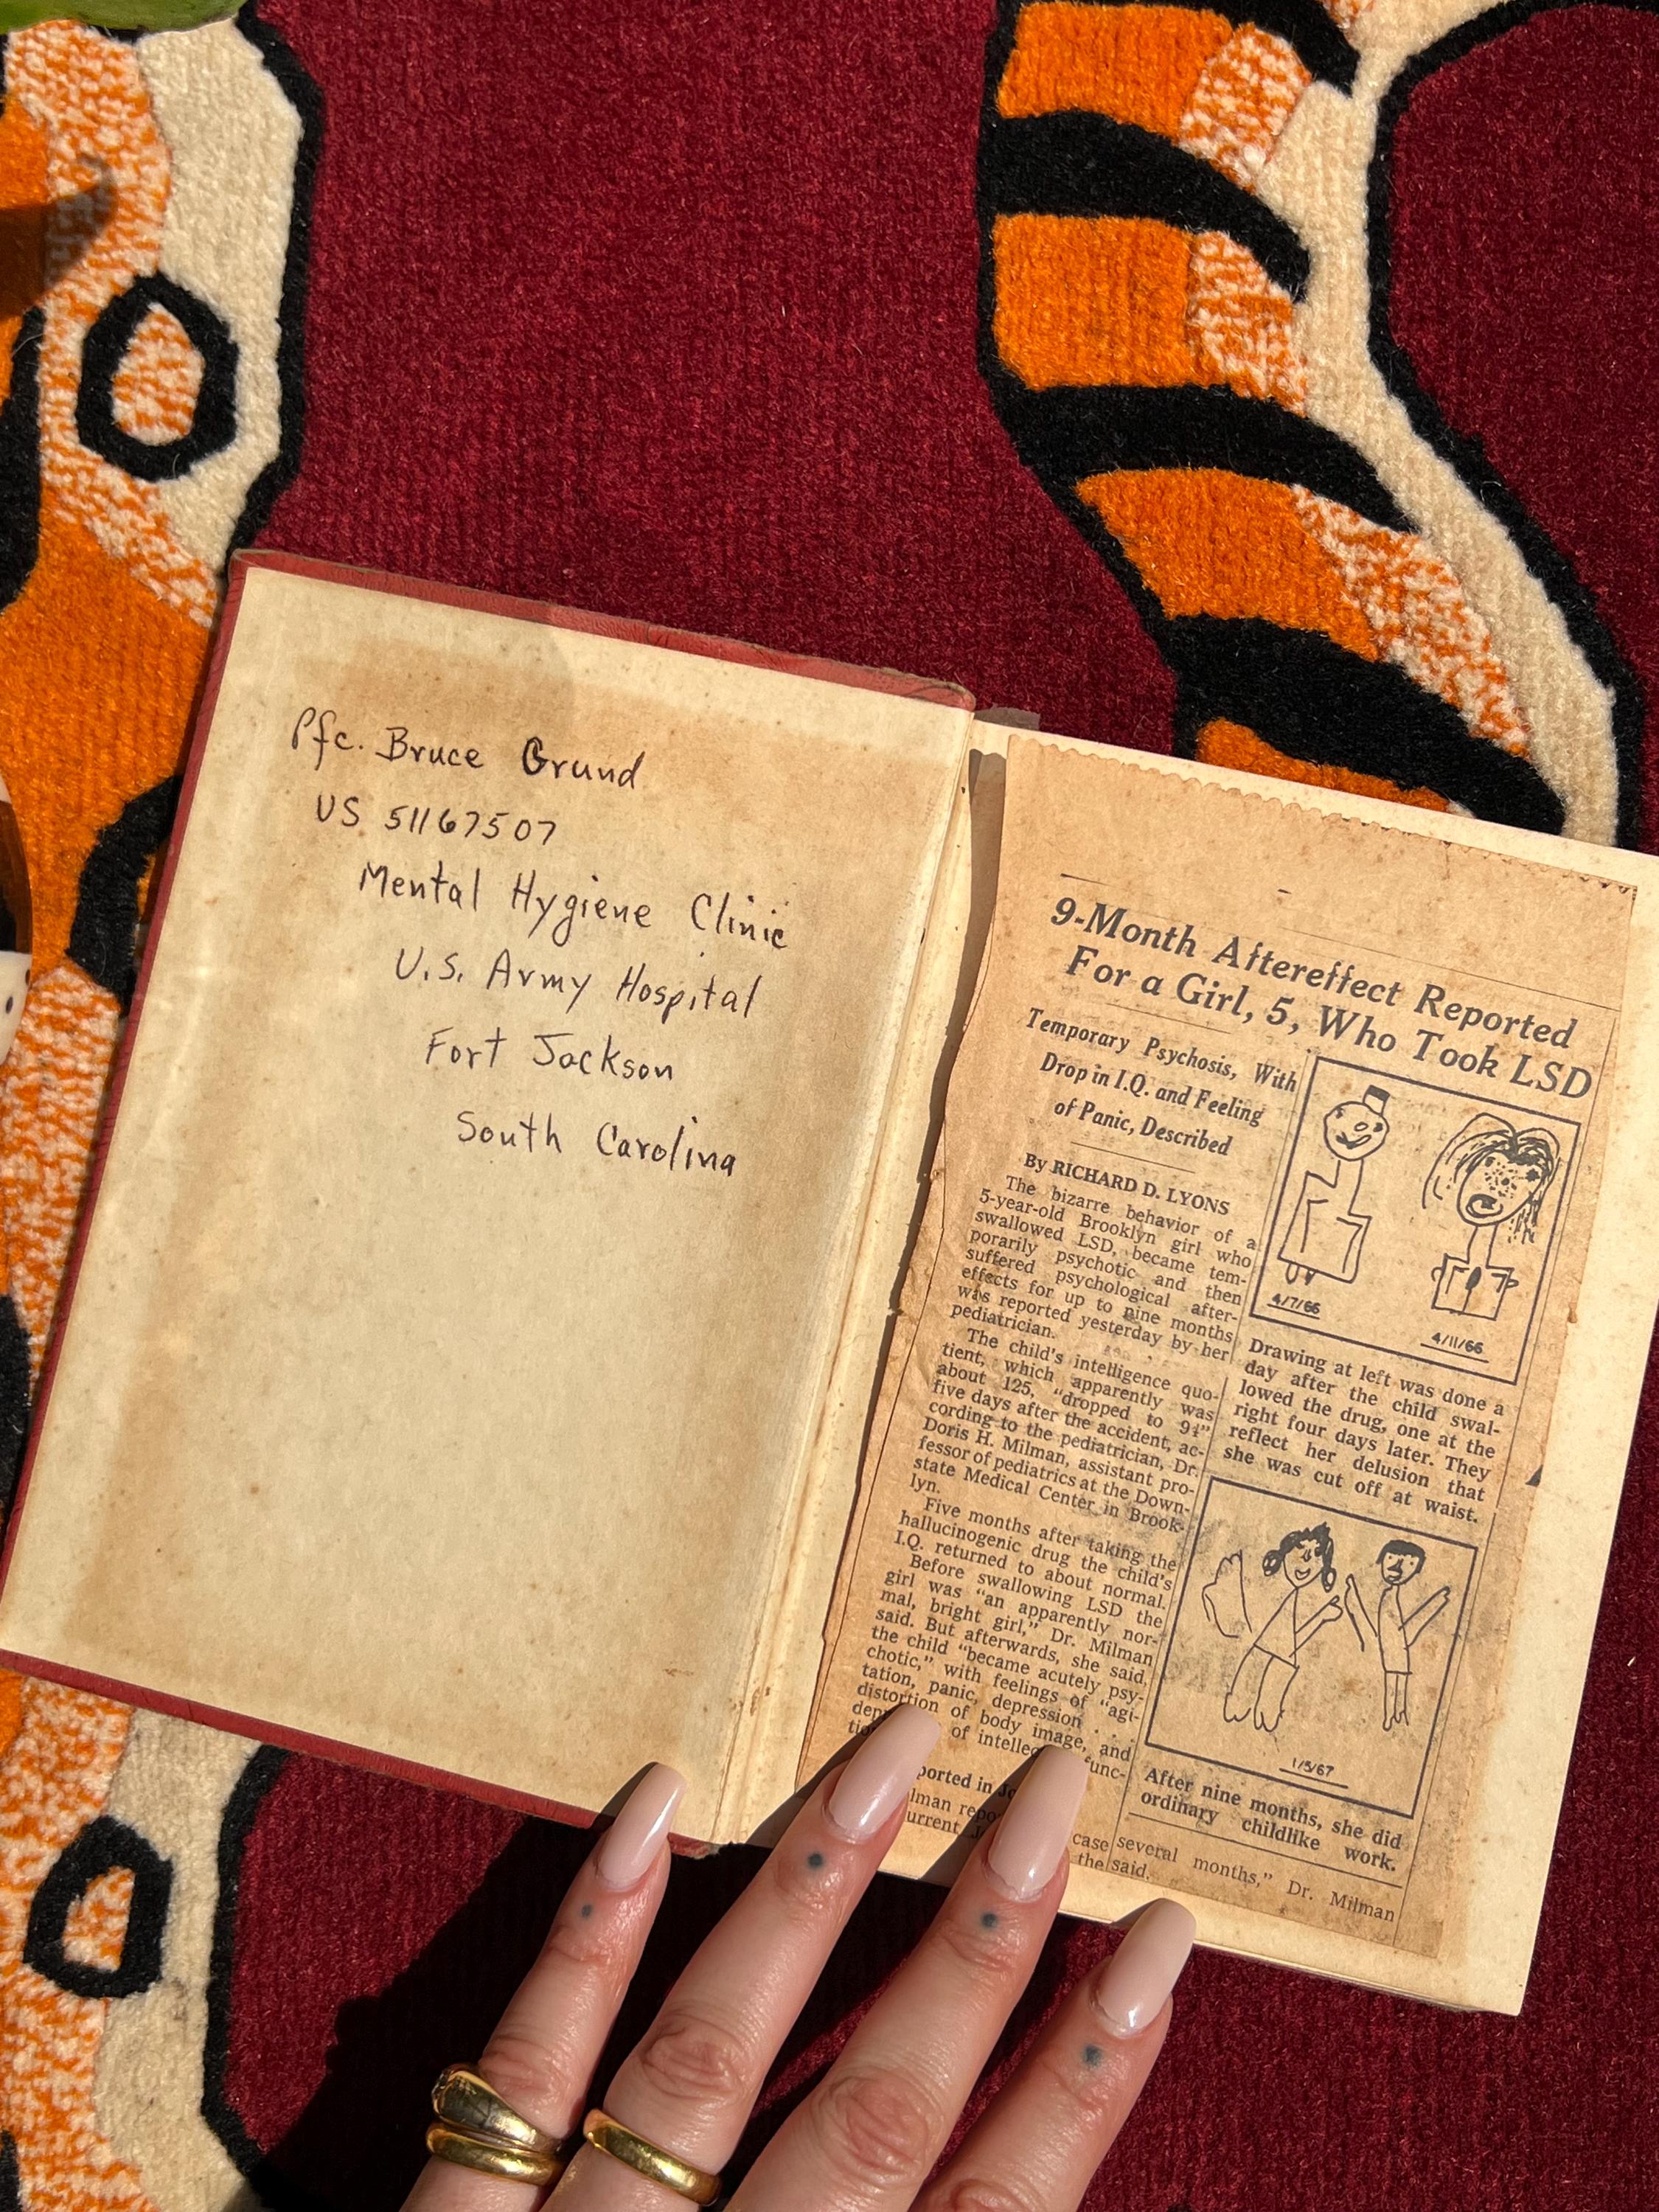 Pfc. Bruce Grund
US 51167507
Mental Hygiene Clinic
U.S. Army Hospital
Fort Jackson
South Carolina
9-Month Aftereffect Reported
For a Girl, 5, Who Took LSD
Temporary Psychosis, With
Drop in I.Q. and Feeling
of Panic, Described
By RICHARD D. LYONS
The bizarre behavior of a
5-year-old Brooklyn girl who
swallowed LSD, became tem-
porarily psychotic and then
suffered psychological after-
effects for up to nine months
was reported yesterday by her
pediatrician.
The child's intelligence quo-
tient, which apparently was
about 125, "dropped to 94"
five days after the accident, ac-
cording to the pediatrician, Dr.
Doris H. Milman, assistant pro-
fessor of pediatrics at the Down-
state Medical Center in Brook-
lyn.
Five months after taking the
hallucinogenic drug the child's
I.Q. returned to about normal.
Before swallowing LSD the
girl was "an apparently nor-
mal, bright girl," Dr. Milman
said. But afterwards, she said,
the child "became acutely psy-
chotic," with feelings of "agi-
tation, panic, depression . . .
distortion of body image, and
of intellec
func-
ported in
lman
urrent
4/7/66
4/11/66
Drawing at left was done a
day after the child swal-
lowed the drug, one at the
right four days later. They
reflect her delusion that
she was cut off at waist.
1/5/67
After nine months, she did
ordinary childlike work.
case several months," Dr. Milman
the said.